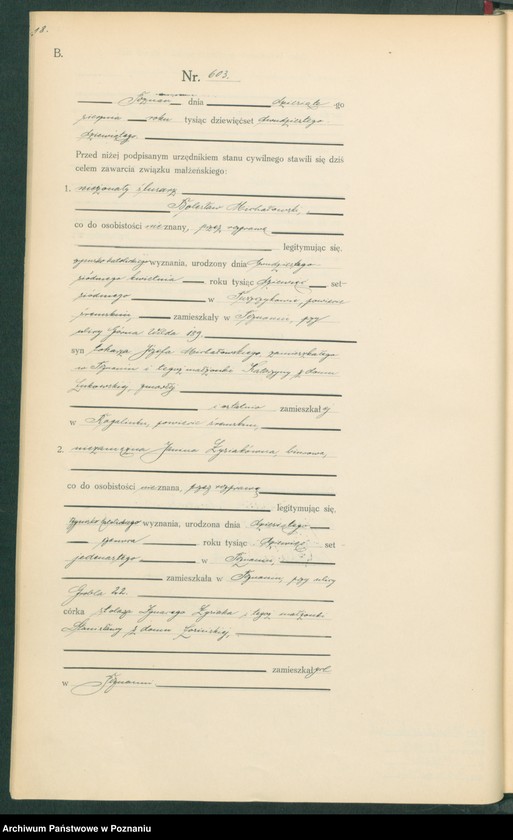 18.
B.
Nr. 603.
Poznań dnia dziesiątego
sierpnia roku tysiąc dziewięćset dwudziestego
dziewiątego.
Przed niżej podpisanym urzędnikiem stanu cywilnego stawili się dziś
celem zawarcia związku małżeńskiego:
1. niezonaty ślusarz
Bolesław Michałowski,
co do osobistości nieznany, przez wyprawę
legitymując się.
rzymsko katolickiego wyznania, urodzony dnia
siódmego kwietnia roku tysiąc dziewięćset-
siódmego w powiecie
zamieszkały w Poznaniu, przy
ulicy Górna Wilda 129.
syn Józefa Michałowskiego, zamieszkałego
w Poznaniu i tegoż małżonki Katarzyny z domu
zmarłej
i ostatnio zamieszkałej
w powiecie
2. niezamężna Janina Zysiakówna, biurowa,
co do osobistości nieznana, przez wyprawę
legitymując się.
rzymsko katolickiego wyznania, urodzona dnia dziesiątego
roku tysiąc dziewięćset
jedenastego w Poznaniu,
zamieszkała w Poznaniu, przy ulicy
Grobla 22.
córka stolarza Ignacego Zysiaka i tegoż małżonki
Stanisławy z domu
zamieszkałych
w Poznaniu
Archiwum Państwowe w Poznaniu